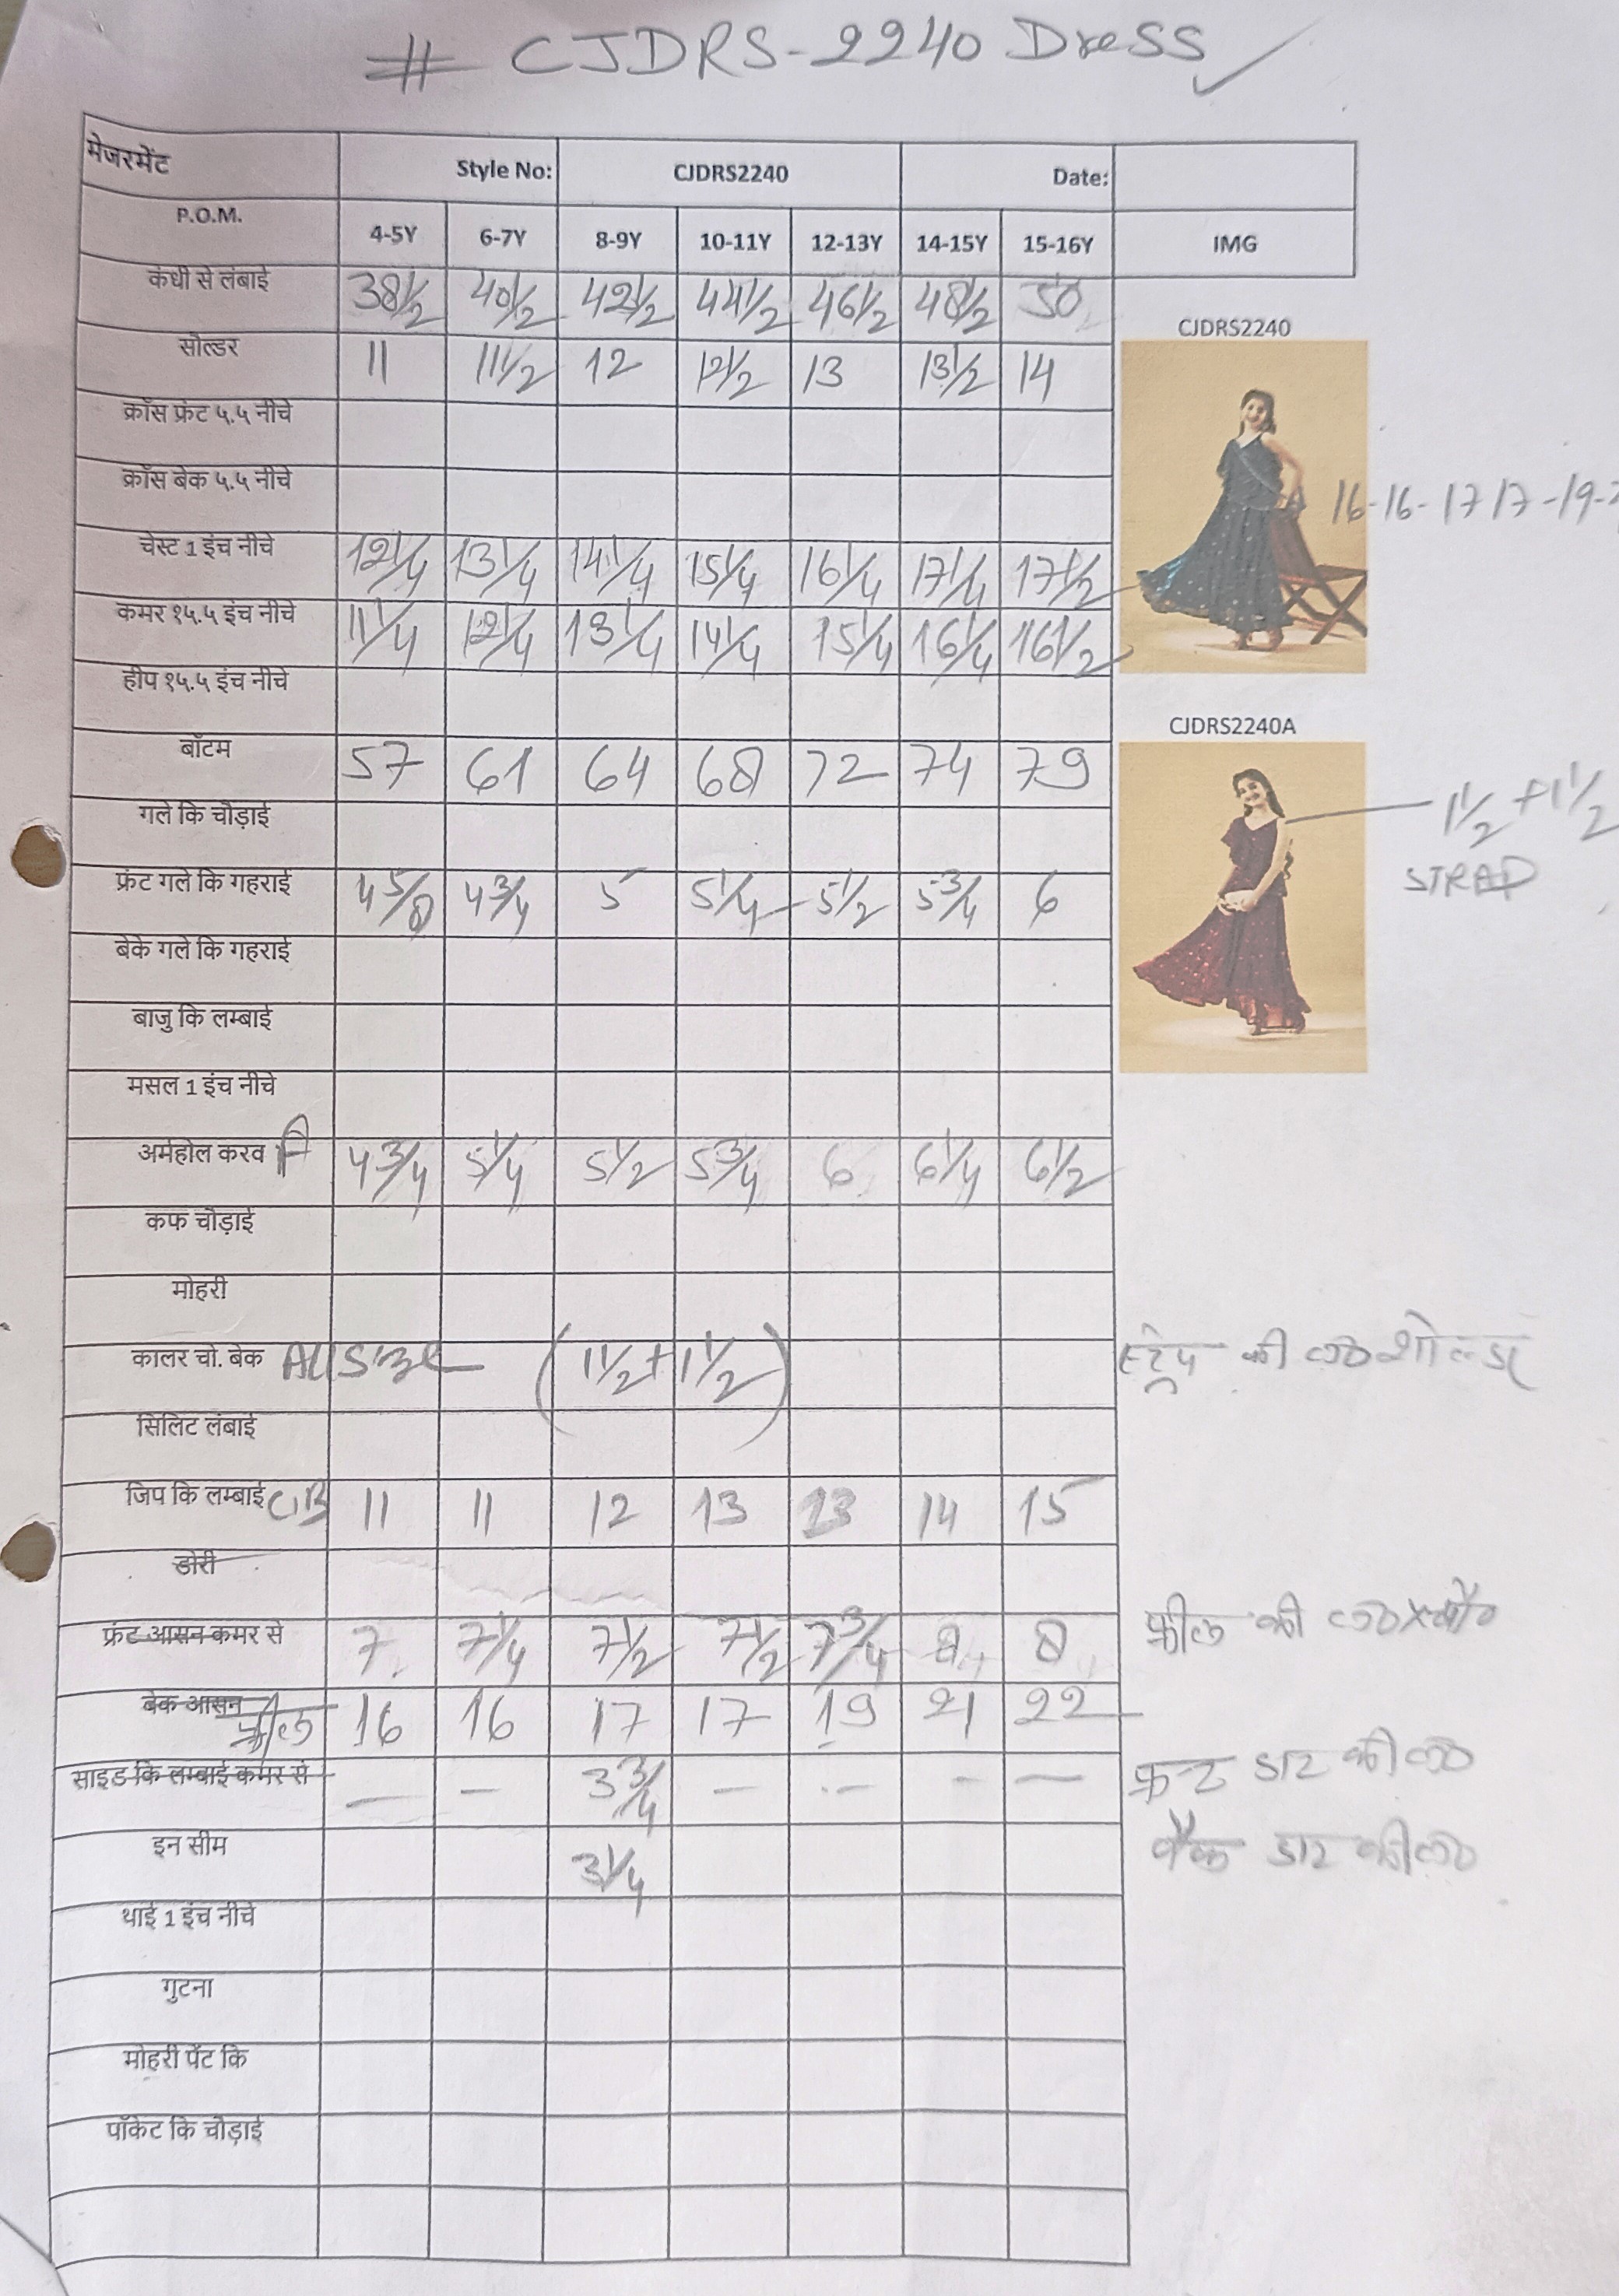 # CJDRS-2240 Dress ✓
मेजरमेंट Style No: CJDRS2240 Date:
P.O.M. 4-5Y 6-7Y 8-9Y 10-11Y 12-13Y 14-15Y 15-16Y IMG
कंधी से लंबाई 38 1/2 40 1/2 42 1/2 44 1/2 46 1/2 48 1/2 50
CJDRS2240
सोल्डर 11 11 1/2 12 12 1/2 13 13 1/2 14
क्रॉस फ्रंट ५.५ नीचे
क्रॉस बेक ५.५ नीचे
16-16-17 17-19-
चेस्ट 1 इंच नीचे 12 1/4 13 1/4 14 1/4 15 1/4 16 1/4 17 1/4 17 1/2
कमर १५.५ इंच नीचे 11 1/4 12 1/4 13 1/4 14 1/4 15 1/4 16 1/4 16 1/2
हीप १५.५ इंच नीचे
CJDRS2240A
बॉटम 57 61 64 68 72 74 79
गले कि चौड़ाई
1 1/2 + 1 1/2
STRAP
फ्रंट गले कि गहराई 4 5/8 4 3/4 5 5 1/4 5 1/2 5 3/4 6
बेके गले कि गहराई
बाजु कि लम्बाई
मसल 1 इंच नीचे
अर्महोल करव F 4 3/4 5 1/4 5 1/2 5 3/4 6 6 1/4 6 1/2
कफ चौड़ाई
मोहरी
कालर चो. बेक All Size (1 1/2 + 1 1/2) स्ट्रेप की ल० शोल्डर
सिलिट लंबाई
जिप कि लम्बाई CB 11 11 12 13 13 14 15
डोरी
फ्रंट आसन कमर से 7 7 1/4 7 1/2 7 1/2 7 3/4 8 8 फ्रील की ल०×चौ०
बेक आसन फ्रील 16 16 17 17 19 21 22
साइड कि लम्बाई कमर से — — 3 3/4 — — — — फ्रन्ट डाट की ल०
इन सीम 3 1/4 बैक डाट की ल०
थाई 1 इंच नीचे
गुटना
मोहरी पॅट कि
पॉकेट कि चौड़ाई